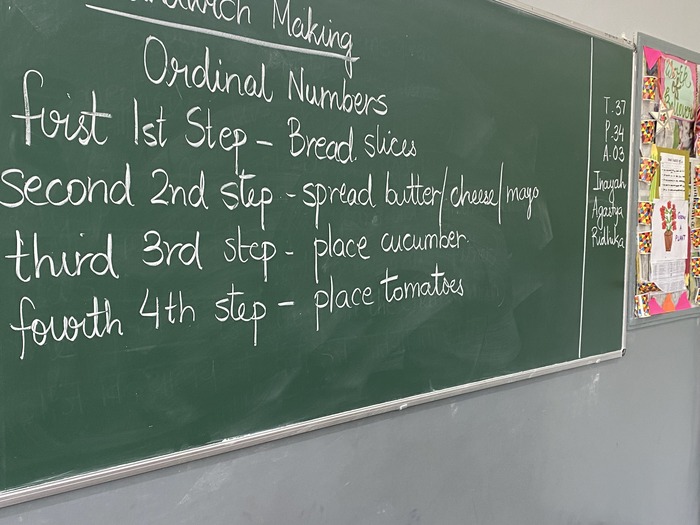 Making
Ordinal Numbers
first 1st Step - Bread slices
second 2nd step - spread butter/cheese/mayo
third 3rd step - place cucumber
fourth 4th step - place tomatoes
T-37
P-34
A-03
Inayah
Agastya
Ridhika
PLANT